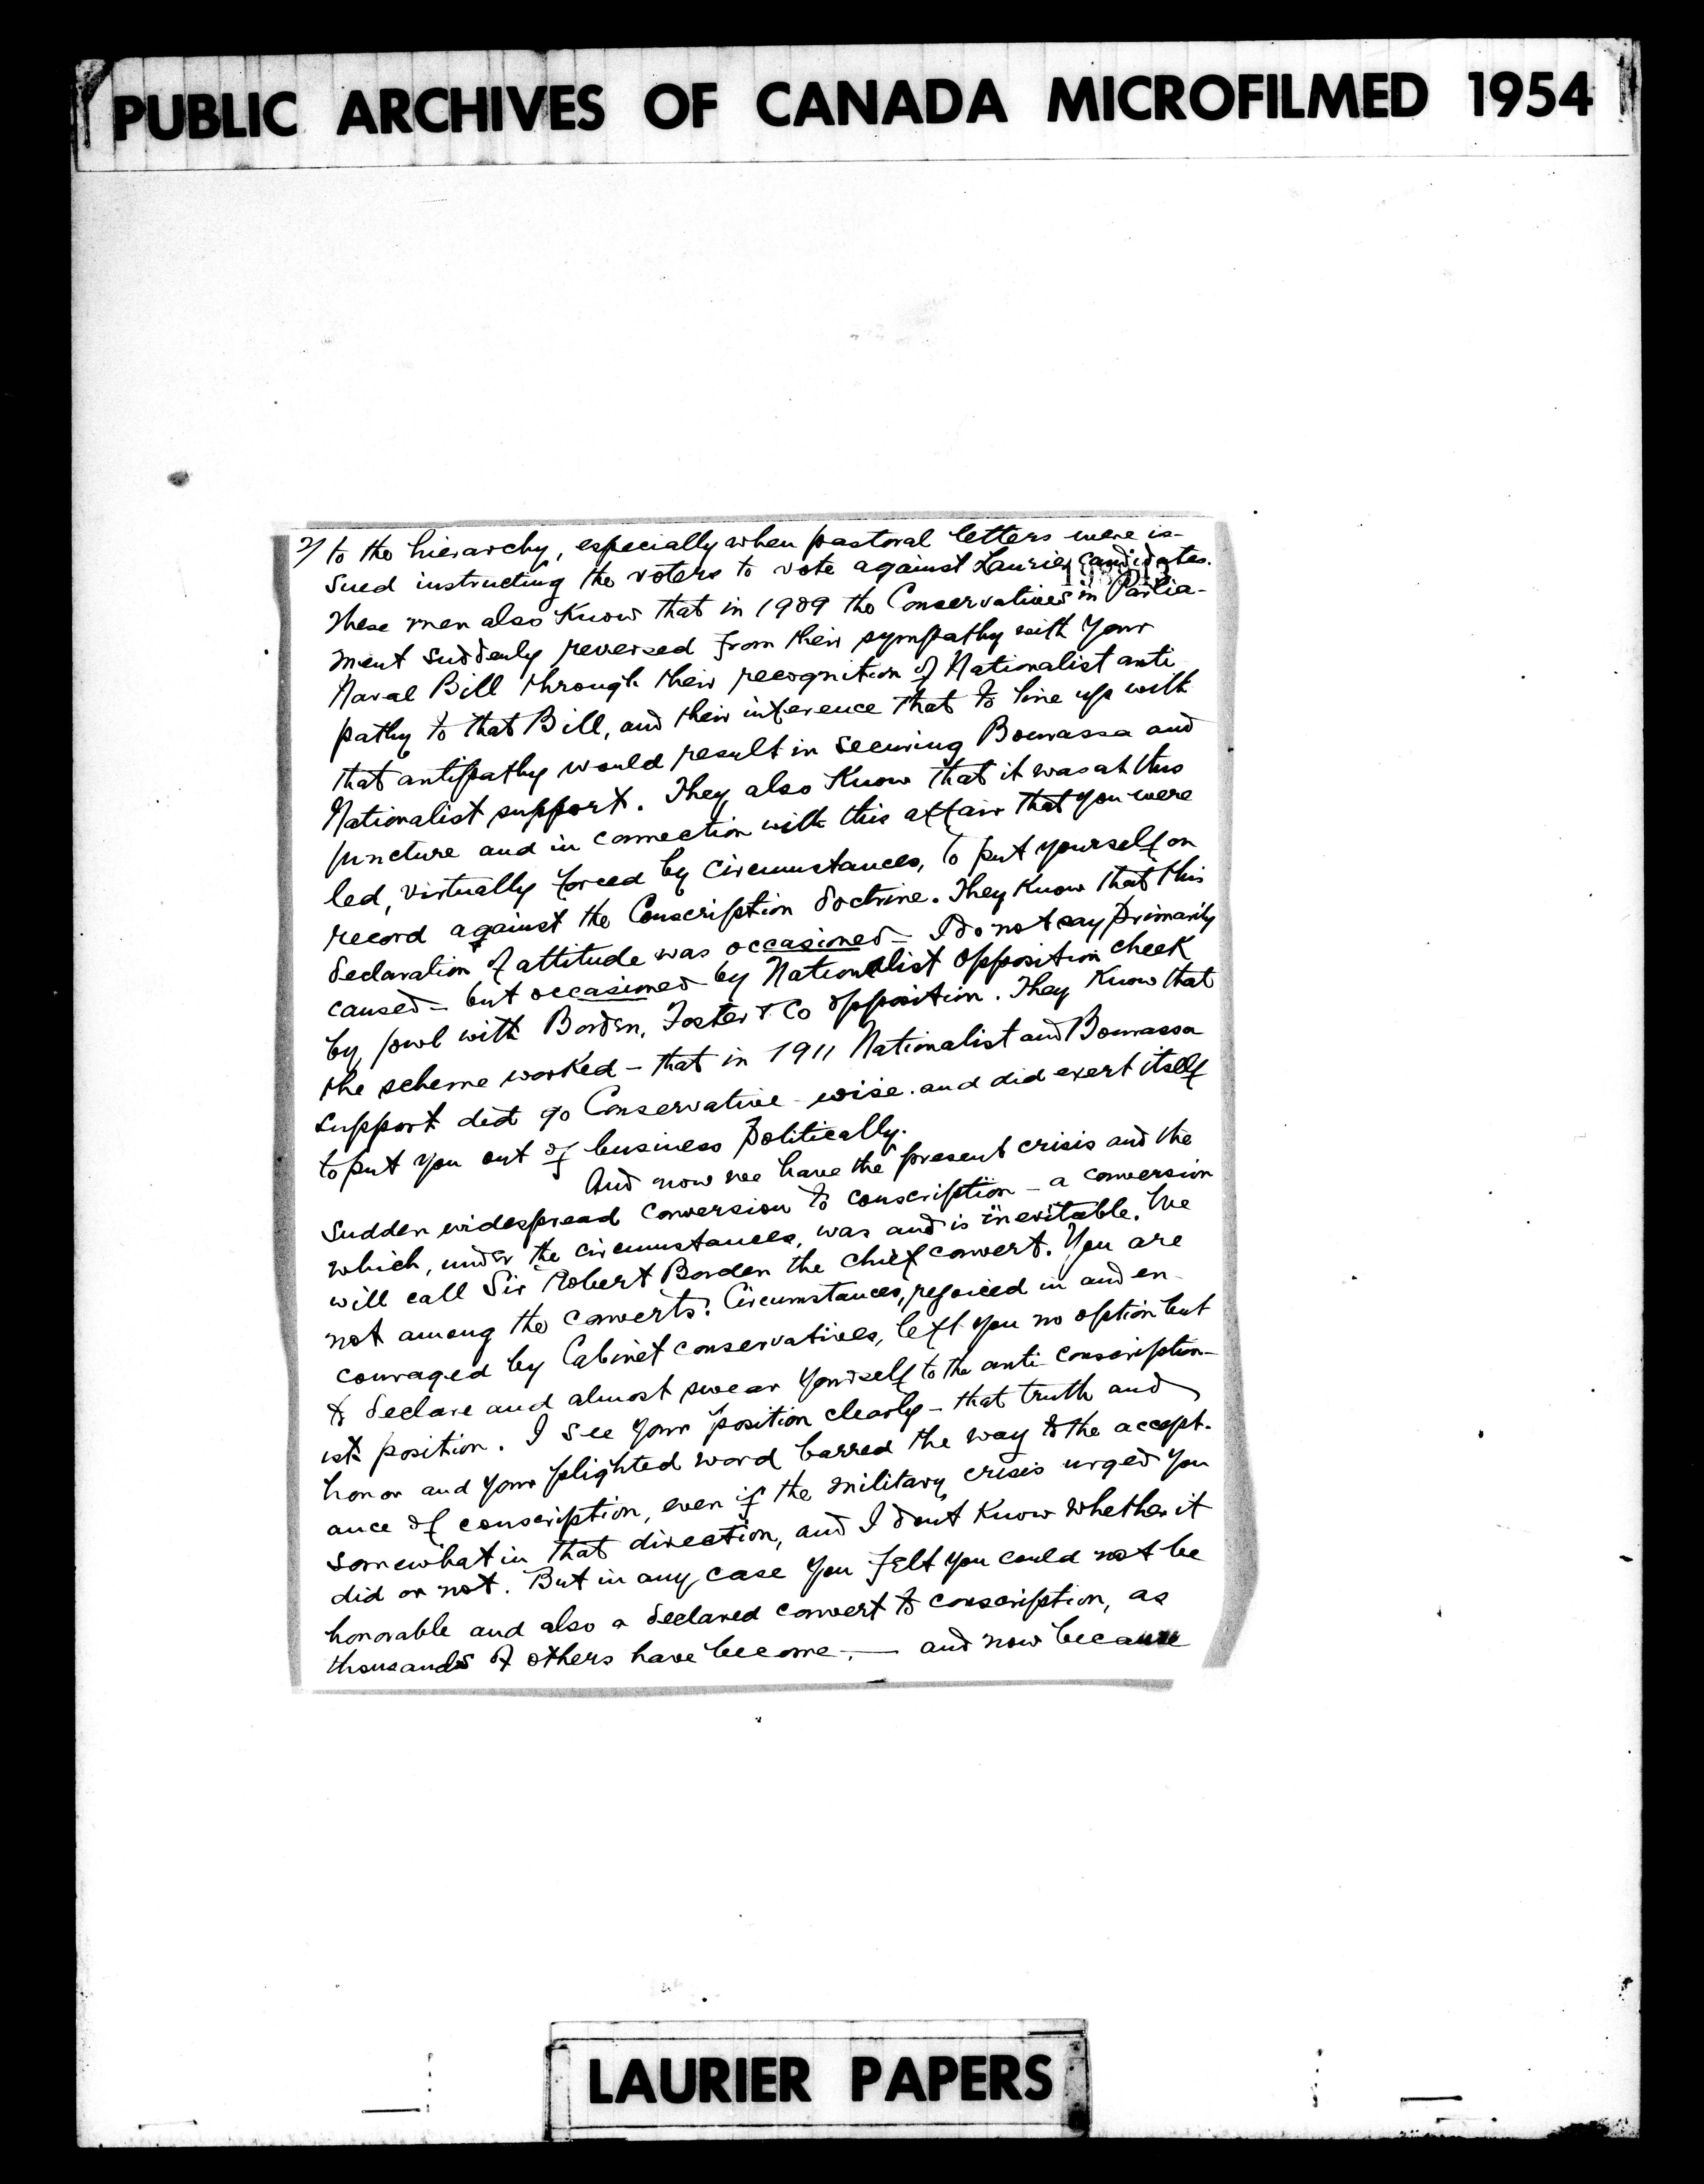 PUBLIC ARCHIVES OF CANADA MICROFILMED 1954
2) to the hierarchy, especially when pastoral letters were is-
sued instructing the voters to vote against Laurier candidates.
These men also know that in 1909 the Conservatives in Parlia-
ment suddenly reversed from their sympathy with your
Naval Bill through their recognition of Nationalist anti
pathy to that Bill, and their inference that to line up with
that antipathy would result in securing Bourassa and
Nationalist support. They also know that it was at this
juncture and in connection with this affair that you were
led, virtually forced by circumstances, to put yourself on
record against the Conscription doctrine. They know that this
declaration of attitude was occasioned – I do not say primarily
caused – but occasioned by Nationalist opposition cheek
by jowl with Borden, Foster & Co opposition. They know that
the scheme worked – that in 1911 Nationalist and Bourassa
support did go Conservative-wise and did exert itself
to put you out of business politically.
And now we have the present crisis and the
sudden widespread conversion to conscription – a conversion
which, under the circumstances, was and is inevitable. We
will call Sir Robert Borden the chief convert. You are
not among the converts. Circumstances, rejoiced in and en-
couraged by Cabinet conservatives, left you no option but
to declare and almost swear yourself to the anti-conscription-
ist position. I see your position clearly – that truth and
honor and your plighted word barred the way to the accept-
ance of conscription, even if the military crisis urged you
somewhat in that direction, and I dont know whether it
did or not. But in any case you felt you could not be
honorable and also a declared convert to conscription, as
thousands of others have become, — and now because
LAURIER PAPERS